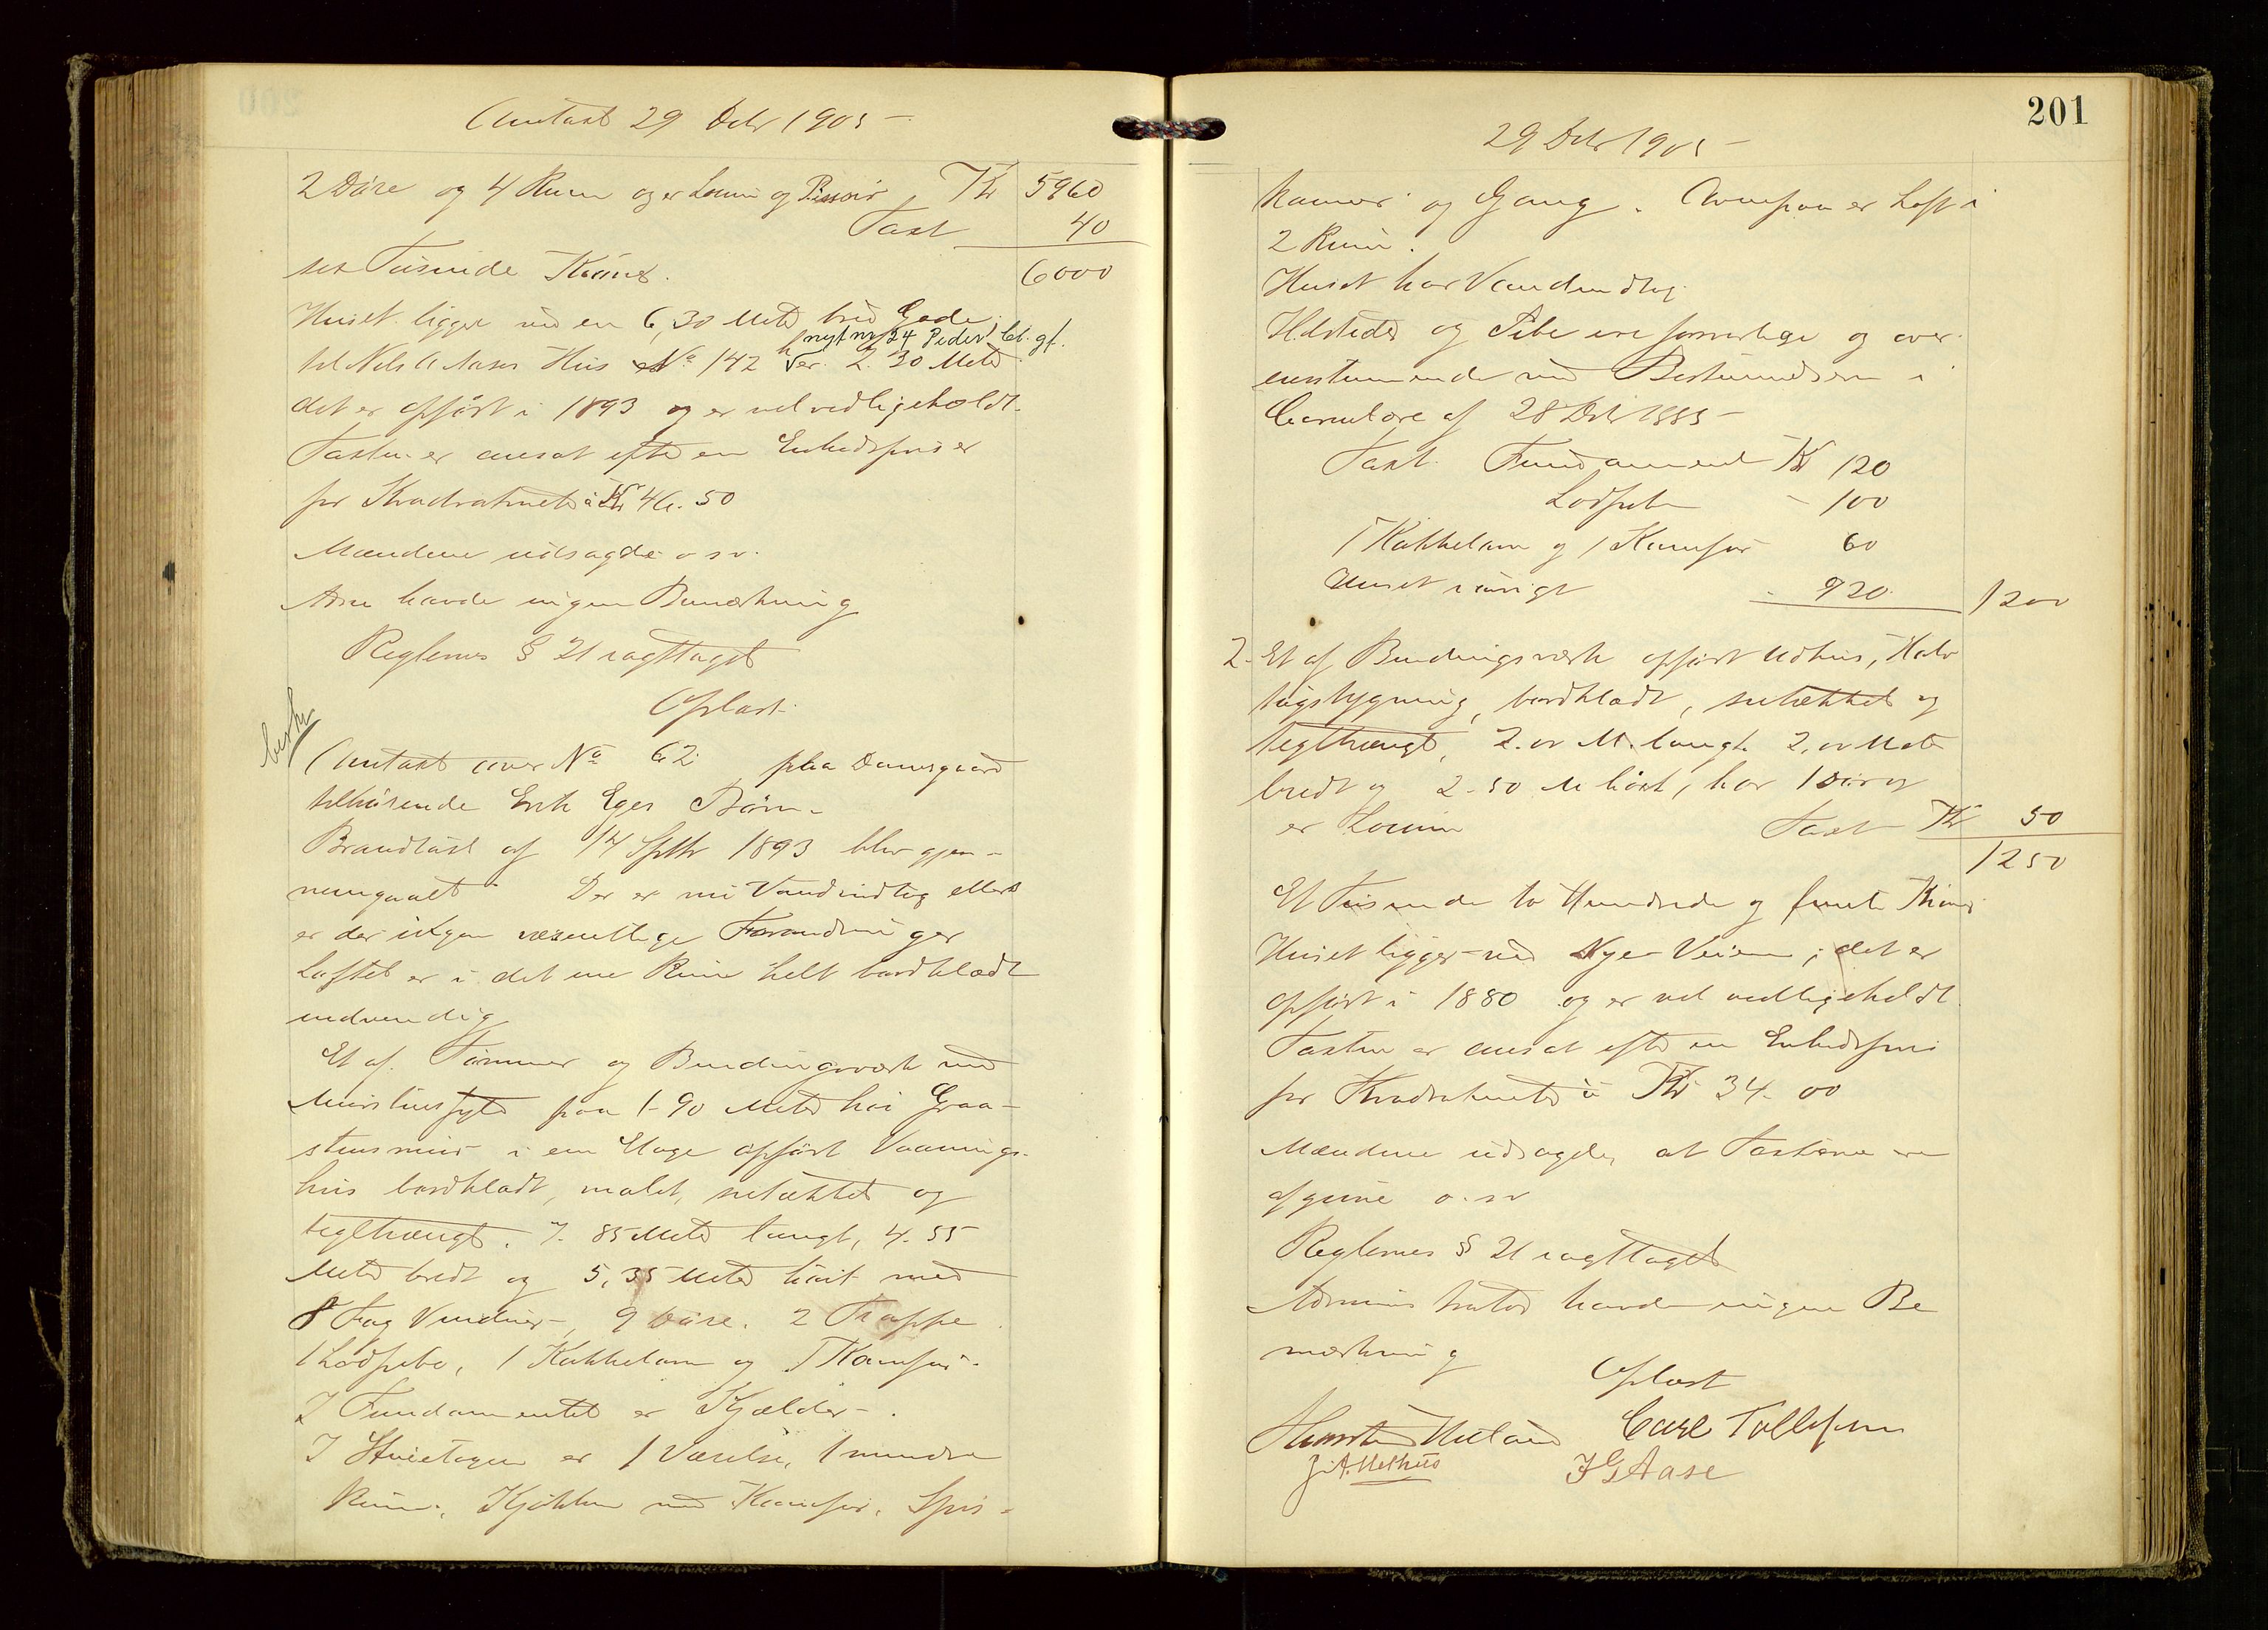 Omtaxt 29 Debr 1905 –
2 Döre og 4 Rum og er Lemn og Pissoir
Kr 5960
Taxt 40
sex Tusinde Kroner.
6000
Huset ligger ved en 6,30 Meter bred Gade
nyt nr 24 Peder Cl. gt.
til Nils A Aases Hus No 142 er 2.30 Meter
det er opført i 1893 og er vel vedligeholdt.
Taxten er ansat efter en Enhedspris
pr Kvadratmeter à Kr 46.50
Mændene udsagde o sv.
Aase havde ingen Bemærkning
Reglernes § 21 iagttaget
Oplæst.
Omtaxt over No 62 paa Damsgaard
tilhørende Erik Eges Børn.
Brandtaxt af 14 Septbr 1893 blev gjen-
nemgaaet Der er nu Vandindlæg ellers
er der ingen væsentlige Forandringer
Loftet er i det ene Rum helt bordklædt
indvendig
Et af Tømmer og Bindingsværk med
Murstensfyld paa 1-90 Meter høi Graa-
stensmur i en Etage opført Vaanings-
hus bordklædt, malet, netækket og
teglhængt. 7.85 Meter langt, 4.55
Meter bredt og 5,35 Meter høit med
8 Fag Vinduer, 9 Döre. 2 Trappe.
1 Lodpibe, 1 Kakkelovn og 1 Komfur.
I Fundamentet er Kjælder.
I Stueetagen er 1 Værelse, 1 mindre
Rum, Kjøkken med Komfur, Spis-
201
29 Debr 1905 –
kamer og Gang. Ovenpaa er Loft i
2 Rum.
Huset har Vandindlæg.
Ildsteder og Pibe ere forsvarlige og over-
ensstemmende med Bestemmelserne i
Circulære af 28 Debr 1885 –
Taxt. Fundament Kr 120
Lodpibe – 100
1 Kakkelovn og 1 Komfur 60
Huset iøvrigt 920
1200
2. Et af Bindingsværk opført Udhus, Halv
tagsbygning, bordklædt, netækket og
teglhængt, 2.00 M. langt 2,00 Meter
bredt og 2-50 M høit, har 1 Dör og
er
Taxt Kr 50
1250
Et Tusinde to Hundrede og femti Kroner
Huset ligger ved Nye Veien; det er
opført i 1880 og er vel vedligeholdt.
Taxten er ansat efter en Enhedspris
pr Kvadratmeter à Kr 34.00
Mændene udsagde, at Taxterne ere
afgivne o. sv
Reglernes § 21 iagttaget
Administrator havde ingen Be
mærkning
Oplæst
Carl Tollefsen
J. A. Methus
J G Aase